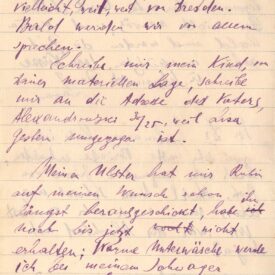 vielleicht, weit, weit von Dresden.
Bald werden wir von allem
sprechen.
Schreibe mir mein Kind, von
Deiner materiellen Lage, schreibe
mir an die Adresse des Vaters,
weil
gestern umgezogen ist.
Meinen Ulster hat mir Rubin
auf meinen Wunsch schon
längst herausgeschickt, habe ihn
noch bis jetzt nicht
erhalten; Warme Unterwäsche werde
ich bei meinem Schwager